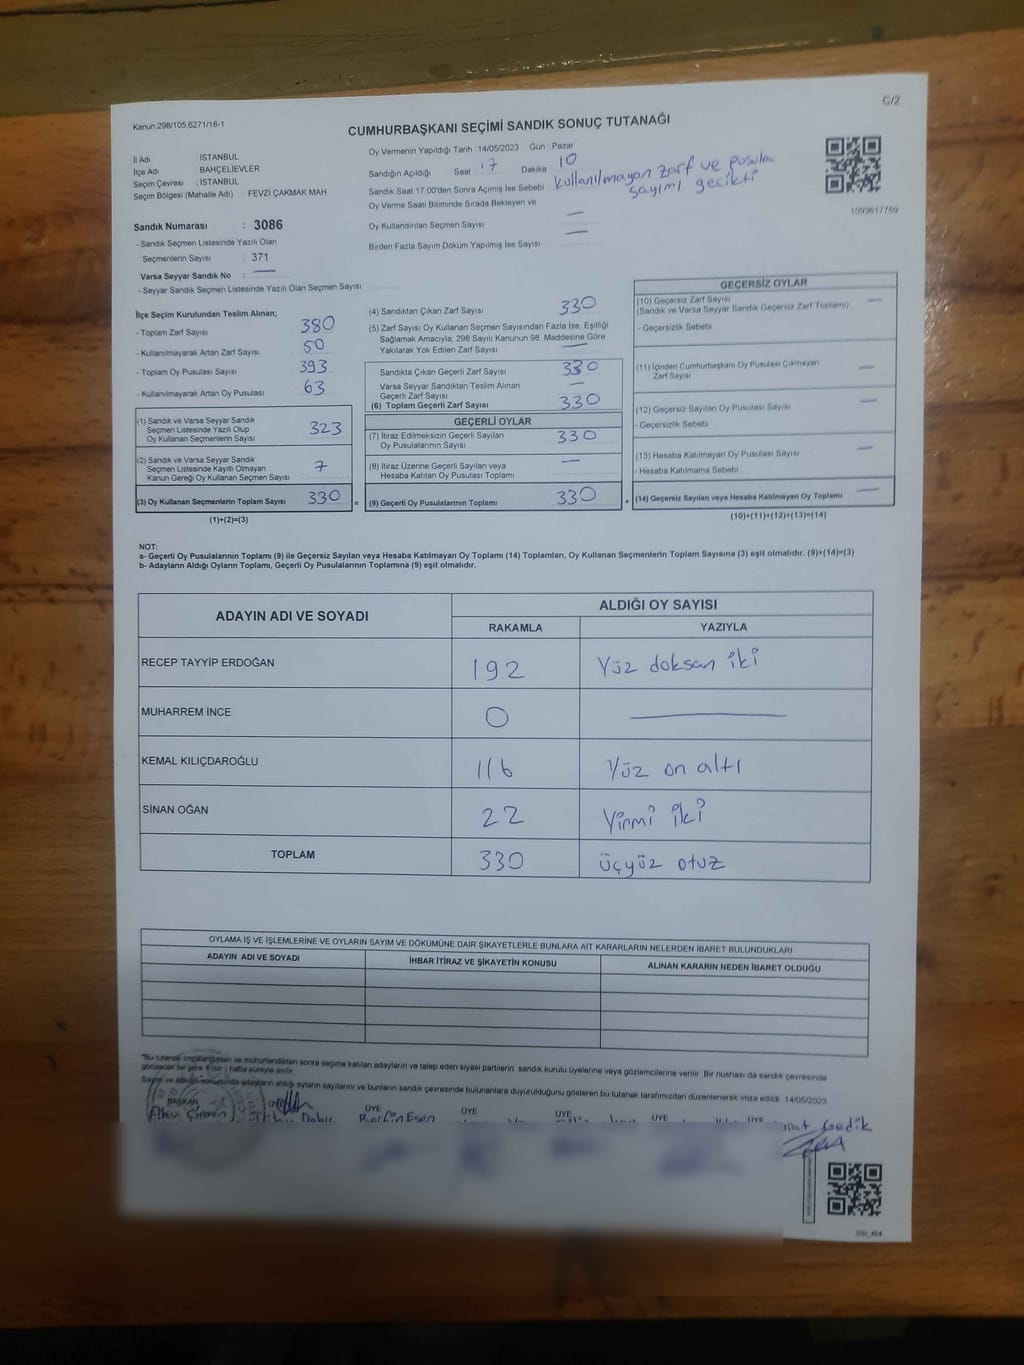 C/2
Kanun:298/105,6271/18-1
CUMHURBAŞKANI SEÇİMİ SANDIK SONUÇ TUTANAĞI
İl Adı : İSTANBUL
İlçe Adı : BAHÇELİEVLER
Seçim Çevresi : İSTANBUL
Seçim Bölgesi (Mahalle Adı) : FEVZİ ÇAKMAK MAH
Oy Vermenin Yapıldığı Tarih : 14/05/2023 Gün : Pazar
Sandığın Açıldığı Saat : 17 Dakika : 10
Sandık Saat 17:00'den Sonra Açımış İse Sebebi : kullanılmayan zarf ve pusula
sayımı gecikti
Oy Verme Saati Bitiminde Sırada Bekleyen ve
Oy Kullandırılan Seçmen Sayısı : —
Birden Fazla Sayım Döküm Yapılmış İse Sayısı : —
1093617769
Sandık Numarası : 3086
- Sandık Seçmen Listesinde Yazılı Olan
Seçmenlerin Sayısı : 371
Varsa Seyyar Sandık No : —
- Seyyar Sandık Seçmen Listesinde Yazılı Olan Seçmen Sayısı :
İlçe Seçim Kurulundan Teslim Alınan;
- Toplam Zarf Sayısı : 380
- Kullanılmayarak Artan Zarf Sayısı : 50
- Toplam Oy Pusulası Sayısı : 393
- Kullanılmayarak Artan Oy Pusulası : 63
(1) Sandık ve Varsa Seyyar Sandık
Seçmen Listesinde Yazılı Olup
Oy Kullanan Seçmenlerin Sayısı : 323
(2) Sandık ve Varsa Seyyar Sandık
Seçmen Listesinde Kayıtlı Olmayan
Kanun Gereği Oy Kullanan Seçmen Sayısı : 7
(3) Oy Kullanan Seçmenlerin Toplam Sayısı : 330 =
(1)+(2)=(3)
(4) Sandıktan Çıkan Zarf Sayısı : 330
(5) Zarf Sayısı Oy Kullanan Seçmen Sayısından Fazla İse, Eşitliği
Sağlamak Amacıyla, 298 Sayılı Kanunun 98. Maddesine Göre
Yakılarak Yok Edilen Zarf Sayısı : —
Sandıkta Çıkan Geçerli Zarf Sayısı : 330
Varsa Seyyar Sandıktan Teslim Alınan
Geçerli Zarf Sayısı : —
(6) Toplam Geçerli Zarf Sayısı : 330
GEÇERLİ OYLAR
(7) İtiraz Edilmeksizin Geçerli Sayılan
Oy Pusulalarının Sayısı : 330
(8) İtiraz Üzerine Geçerli Sayılan veya
Hesaba Katılan Oy Pusulası Toplamı : —
(9) Geçerli Oy Pusulalarının Toplamı : 330 +
GEÇERSİZ OYLAR
(10) Geçersiz Zarf Sayısı : —
(Sandık ve Varsa Seyyar Sandık Geçersiz Zarf Toplamı)
- Geçersizlik Sebebi
(11) İçinden Cumhurbaşkanı Oy Pusulası Çıkmayan
Zarf Sayısı : —
(12) Geçersiz Sayılan Oy Pusulası Sayısı : —
- Geçersizlik Sebebi
(13) Hesaba Katılmayan Oy Pusulası Sayısı : —
- Hesaba Katılmama Sebebi
(14) Geçersiz Sayılan veya Hesaba Katılmayan Oy Toplamı : —
(10)+(11)+(12)+(13)=(14)
NOT:
a- Geçerli Oy Pusulalarının Toplamı (9) ile Geçersiz Sayılan veya Hesaba Katılmayan Oy Toplamı (14) Toplamları, Oy Kullanan Seçmenlerin Toplam Sayısına (3) eşit olmalıdır. (9)+(14)=(3)
b- Adayların Aldığı Oyların Toplamı, Geçerli Oy Pusulalarının Toplamına (9) eşit olmalıdır.
ADAYIN ADI VE SOYADI ALDIĞI OY SAYISI
RAKAMLA YAZIYLA
RECEP TAYYİP ERDOĞAN 192 Yüz doksan iki
MUHARREM İNCE 0 —
KEMAL KILIÇDAROĞLU 116 Yüz on altı
SİNAN OĞAN 22 Yirmi iki
TOPLAM 330 üçyüz otuz
OYLAMA İŞ VE İŞLEMLERİNE VE OYLARIN SAYIM VE DÖKÜMÜNE DAİR ŞİKAYETLERLE BUNLARA AİT KARARLARIN NELERDEN İBARET BULUNDUKLARI
ADAYIN ADI VE SOYADI İHBAR İTİRAZ VE ŞİKAYETİN KONUSU ALINAN KARARIN NEDEN İBARET OLDUĞU
"Bu tutanak imzalandıktan ve mühürlendikten sonra seçime katılan adayların ve talep eden siyasi partilerin sandık kurulu üyelerine veya gözlemcilerine verilir. Bir nüshası da sandık çevresinde
görülecek bir yere 1 (bir) hafta süreyle asılır.
Sayım ve döküm sonucunda adayların aldığı oyların sayılarını ve bunların sandık çevresinde bulunanlara duyurulduğunu gösteren bu tutanak tarafımızdan düzenlenerek imza edildi. 14/05/2023
BAŞKAN ÜYE ÜYE ÜYE ÜYE ÜYE